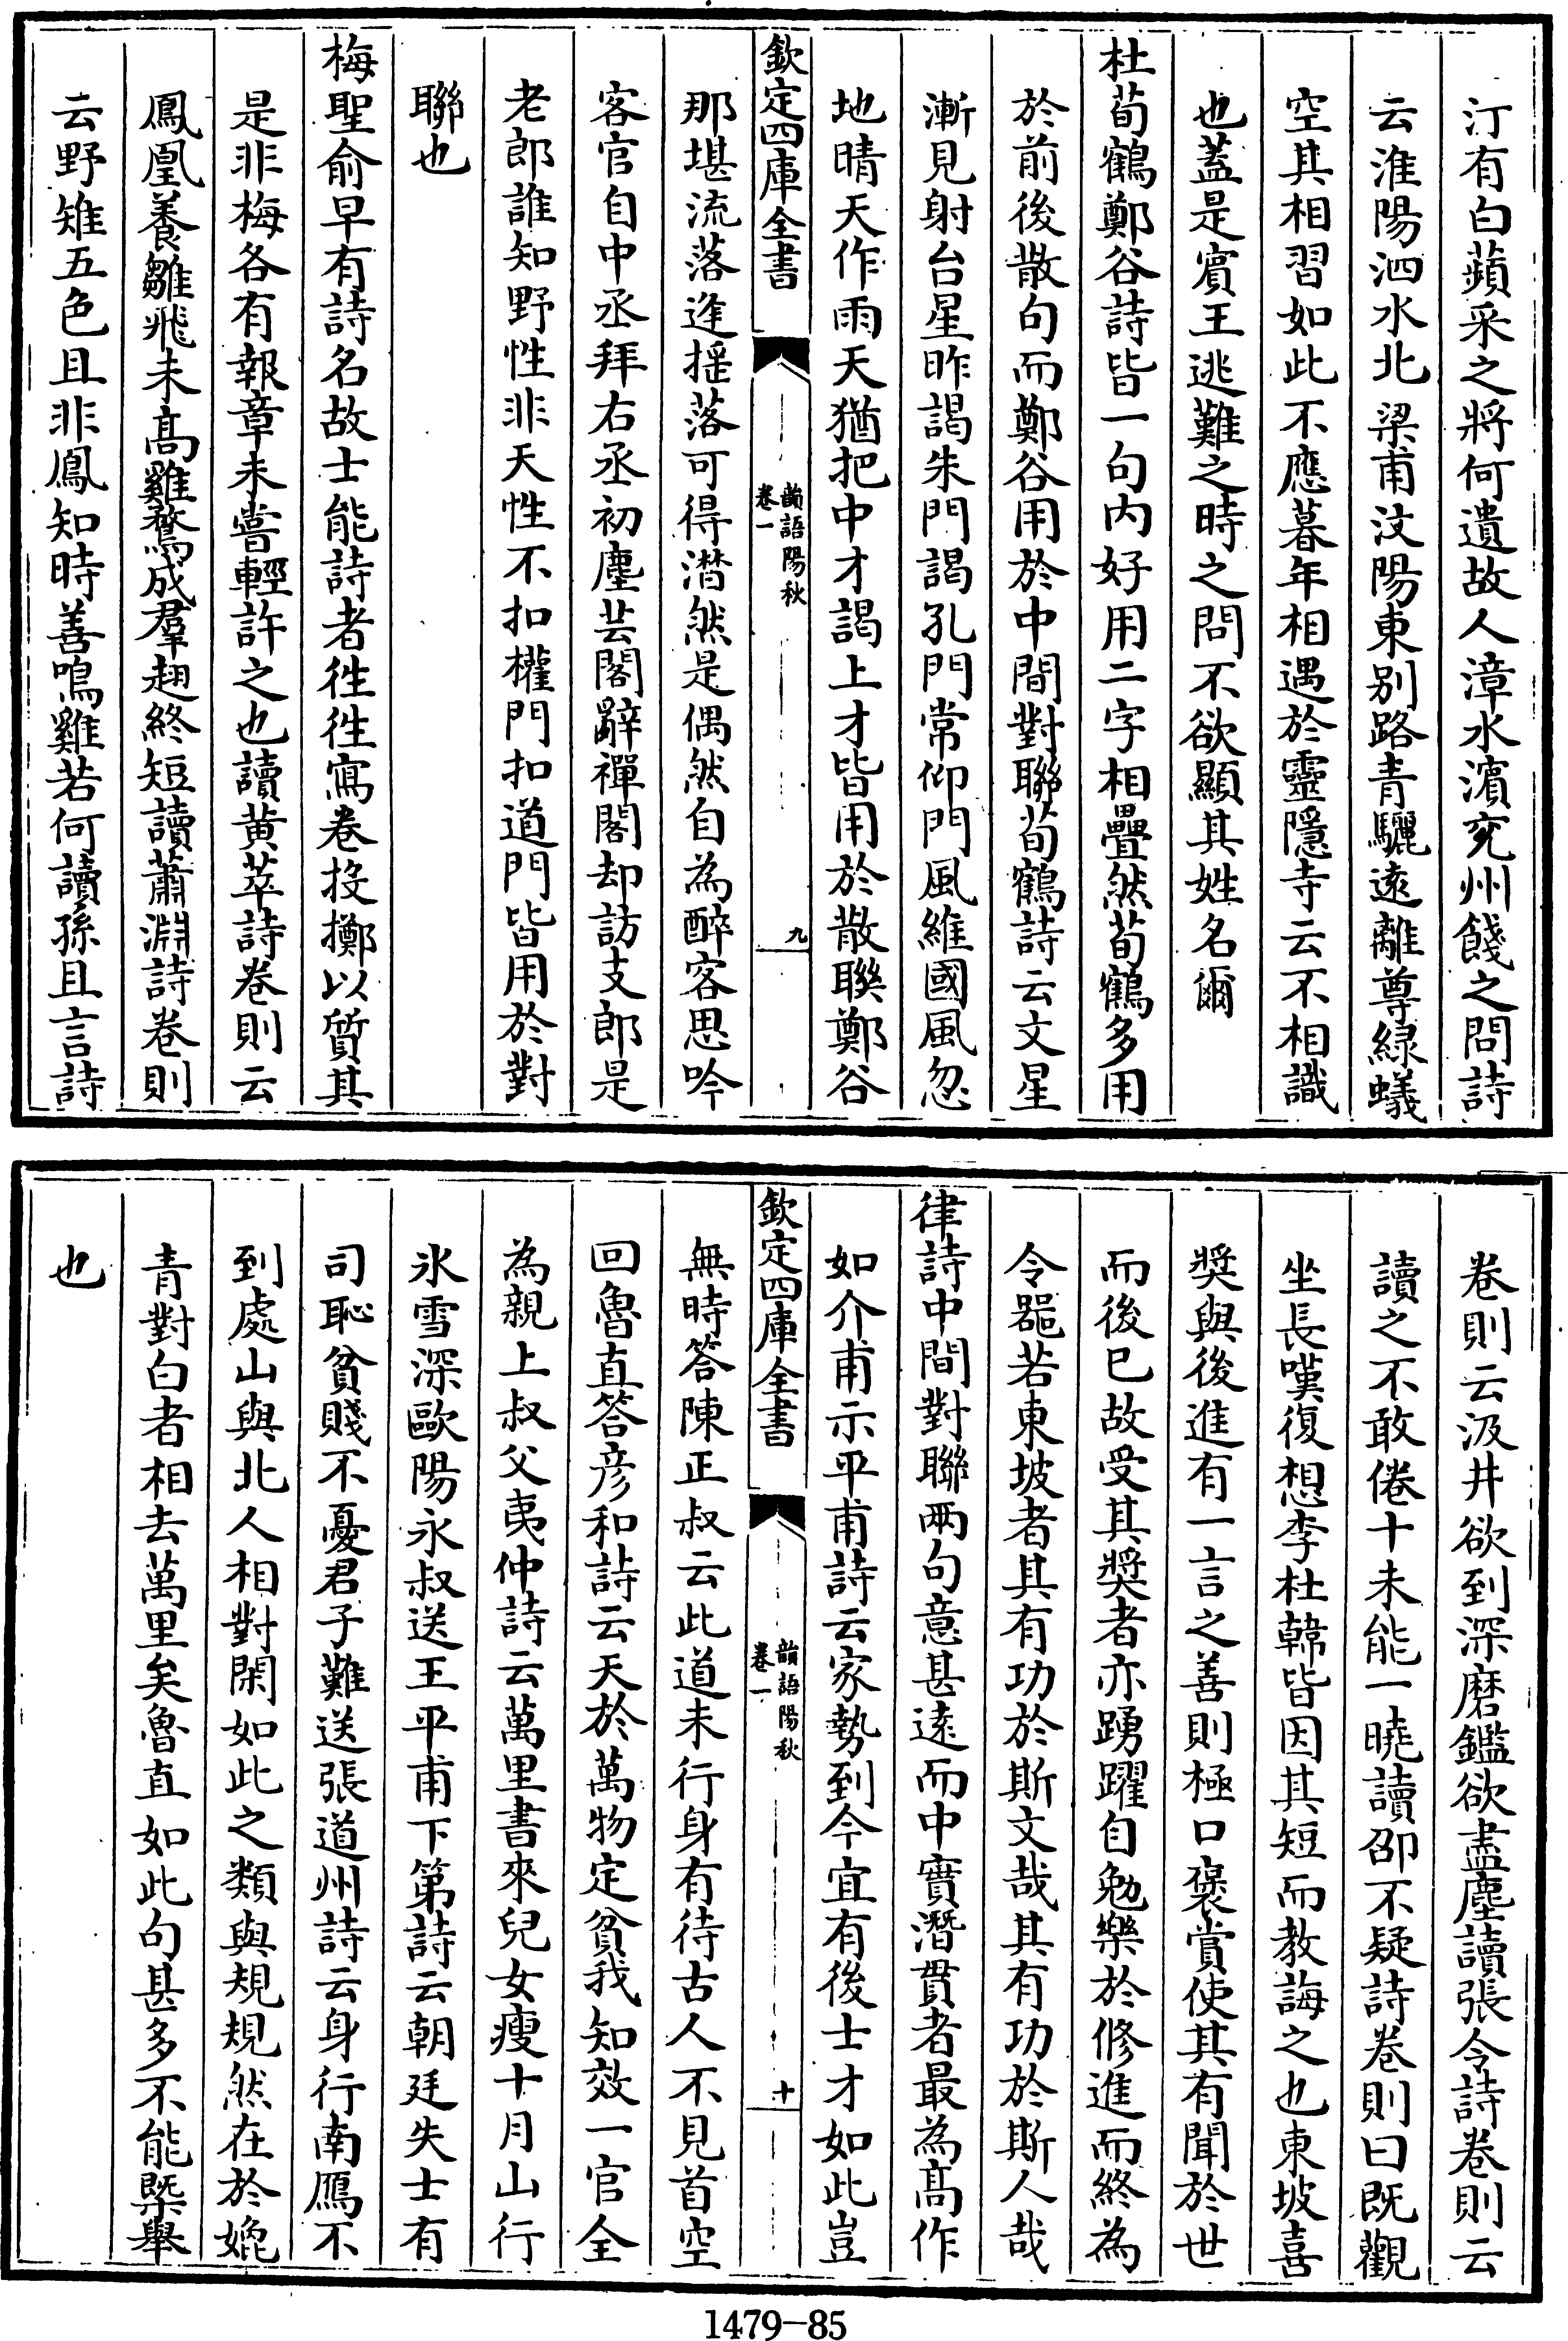 汀有白蘋采之將何遺故人漳水濱兖州餞之問詩
云淮陽泗水北梁甫汶陽東别路青驪遠離尊緑蟻
空其相習如此不應暮年相遇於靈隱寺云不相識
也蓋是賓王逃難之時之問不欲顯其姓名爾
杜荀鶴鄭谷詩皆一句内好用二字相疊然荀鶴多用
於前後散句而鄭谷用於中間對聯荀鶴詩云文星
漸見射台星昨謁朱門謁孔門常仰門風維國風忽
地晴天作雨天猶把中才謁上才皆用於散聯鄭谷
欽定四庫全書
韻語陽秋
卷一
九
那堪流落逢摇落可得潸然是偶然自為醉客思吟
客官自中丞拜右丞初塵芸閣辭禪閣却訪支郎是
老郎誰知野性非天性不扣權門扣道門皆用於對
聯也
梅聖俞早有詩名故士能詩者往往寫卷投擲以質其
是非梅各有報章未嘗輕許之也讀黄萃詩卷則云
鳳凰養雛飛未髙雞鶩成羣翅終短讀蕭淵詩卷則
云野雉五色且非鳳知時善鳴雞若何讀孫且言詩
卷則云汲井欲到深磨鑑欲盡塵讀張令詩卷則云
讀之不敢倦十未能一曉讀邵不疑詩卷則曰既觀
坐長嘆復想李杜韓皆因其短而教誨之也東坡喜
奬與後進有一言之善則極口褒賞使其有聞於世
而後已故受其奬者亦踴躍自勉樂於修進而終為
令器若東坡者其有功於斯文哉其有功於斯人哉
律詩中間對聯兩句意甚遠而中實潛貫者最為髙作
如介甫示平甫詩云家勢到今宜有後士才如此豈
欽定四庫全書
韻語陽秋
卷一
十
無時答陳正叔云此道未行身有待古人不見首空
回魯直答彦和詩云天於萬物定貧我知效一官全
為親上叔父夷仲詩云萬里書來兒女瘦十月山行
氷雪深歐陽永叔送王平甫下第詩云朝廷失士有
司恥貧賤不憂君子難送張道州詩云身行南鴈不
到處山與北人相對閑如此之類與規規然在於媲
青對白者相去萬里矣魯直如此句甚多不能槩舉
也
1479-85